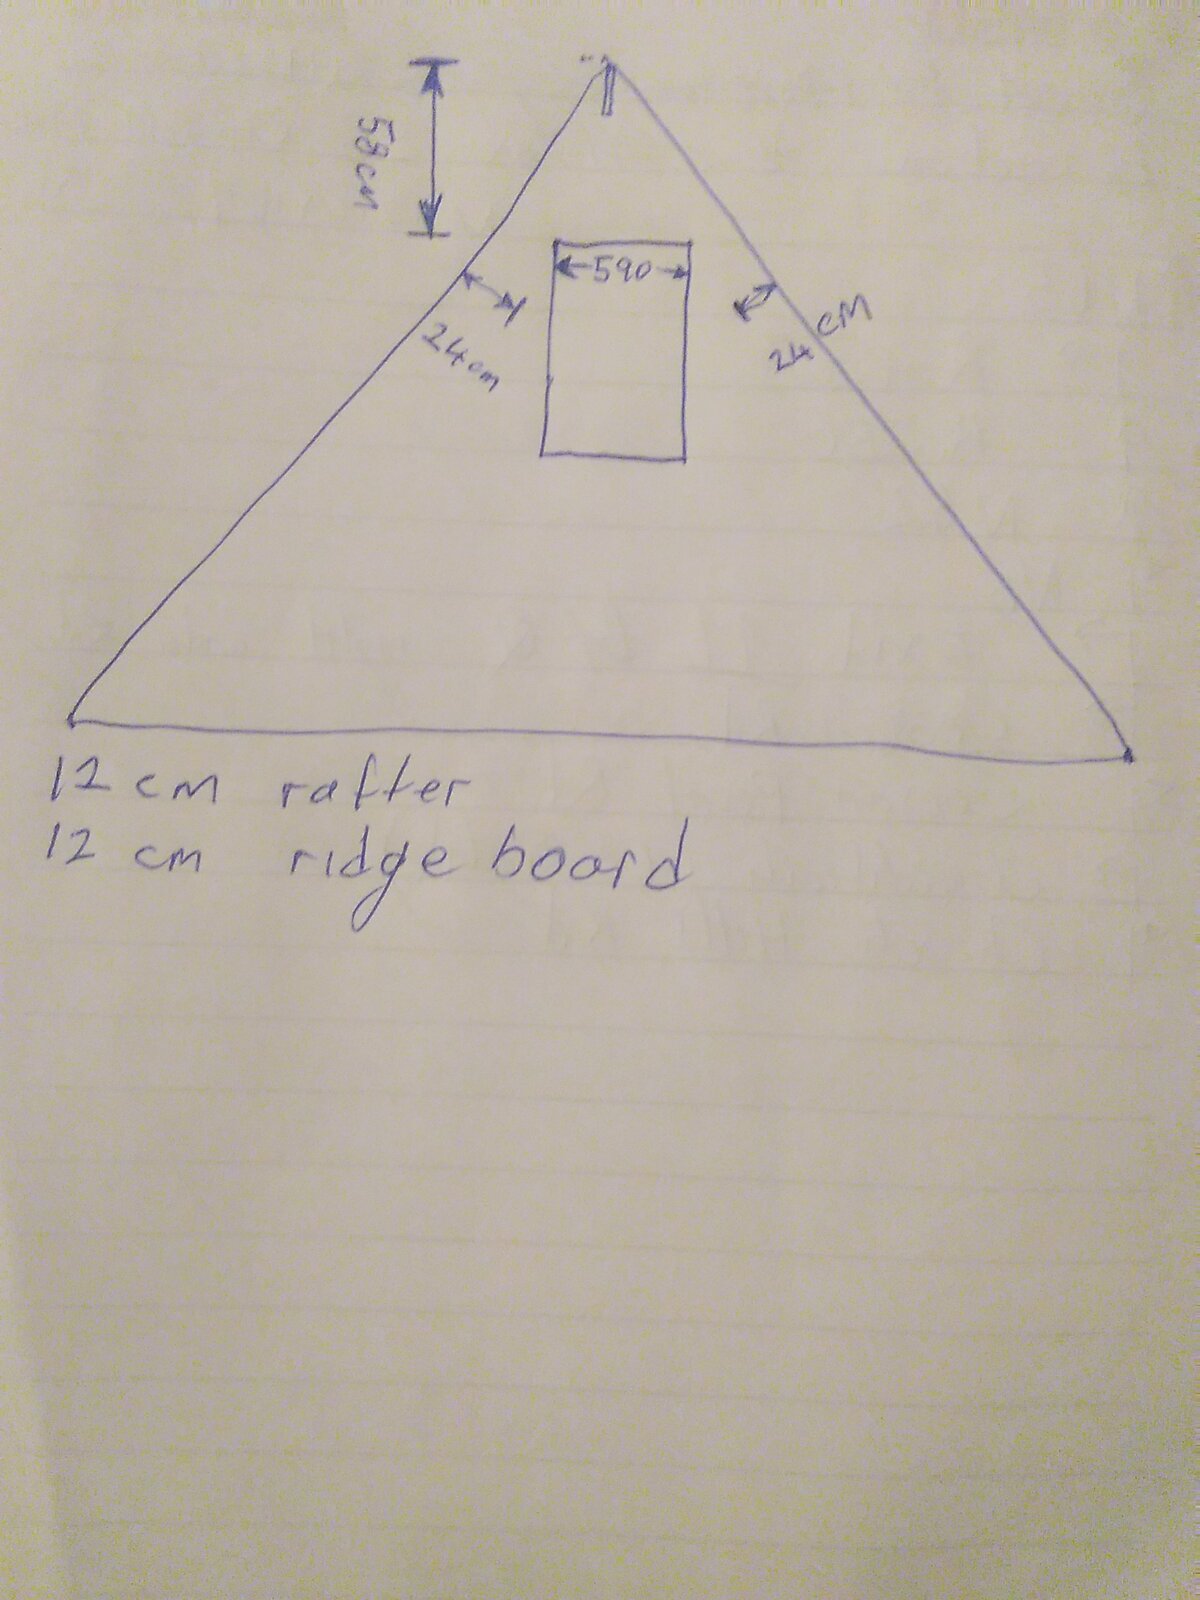 58cm
590
24cm
24 cm
12 cm rafter
12 cm ridge board